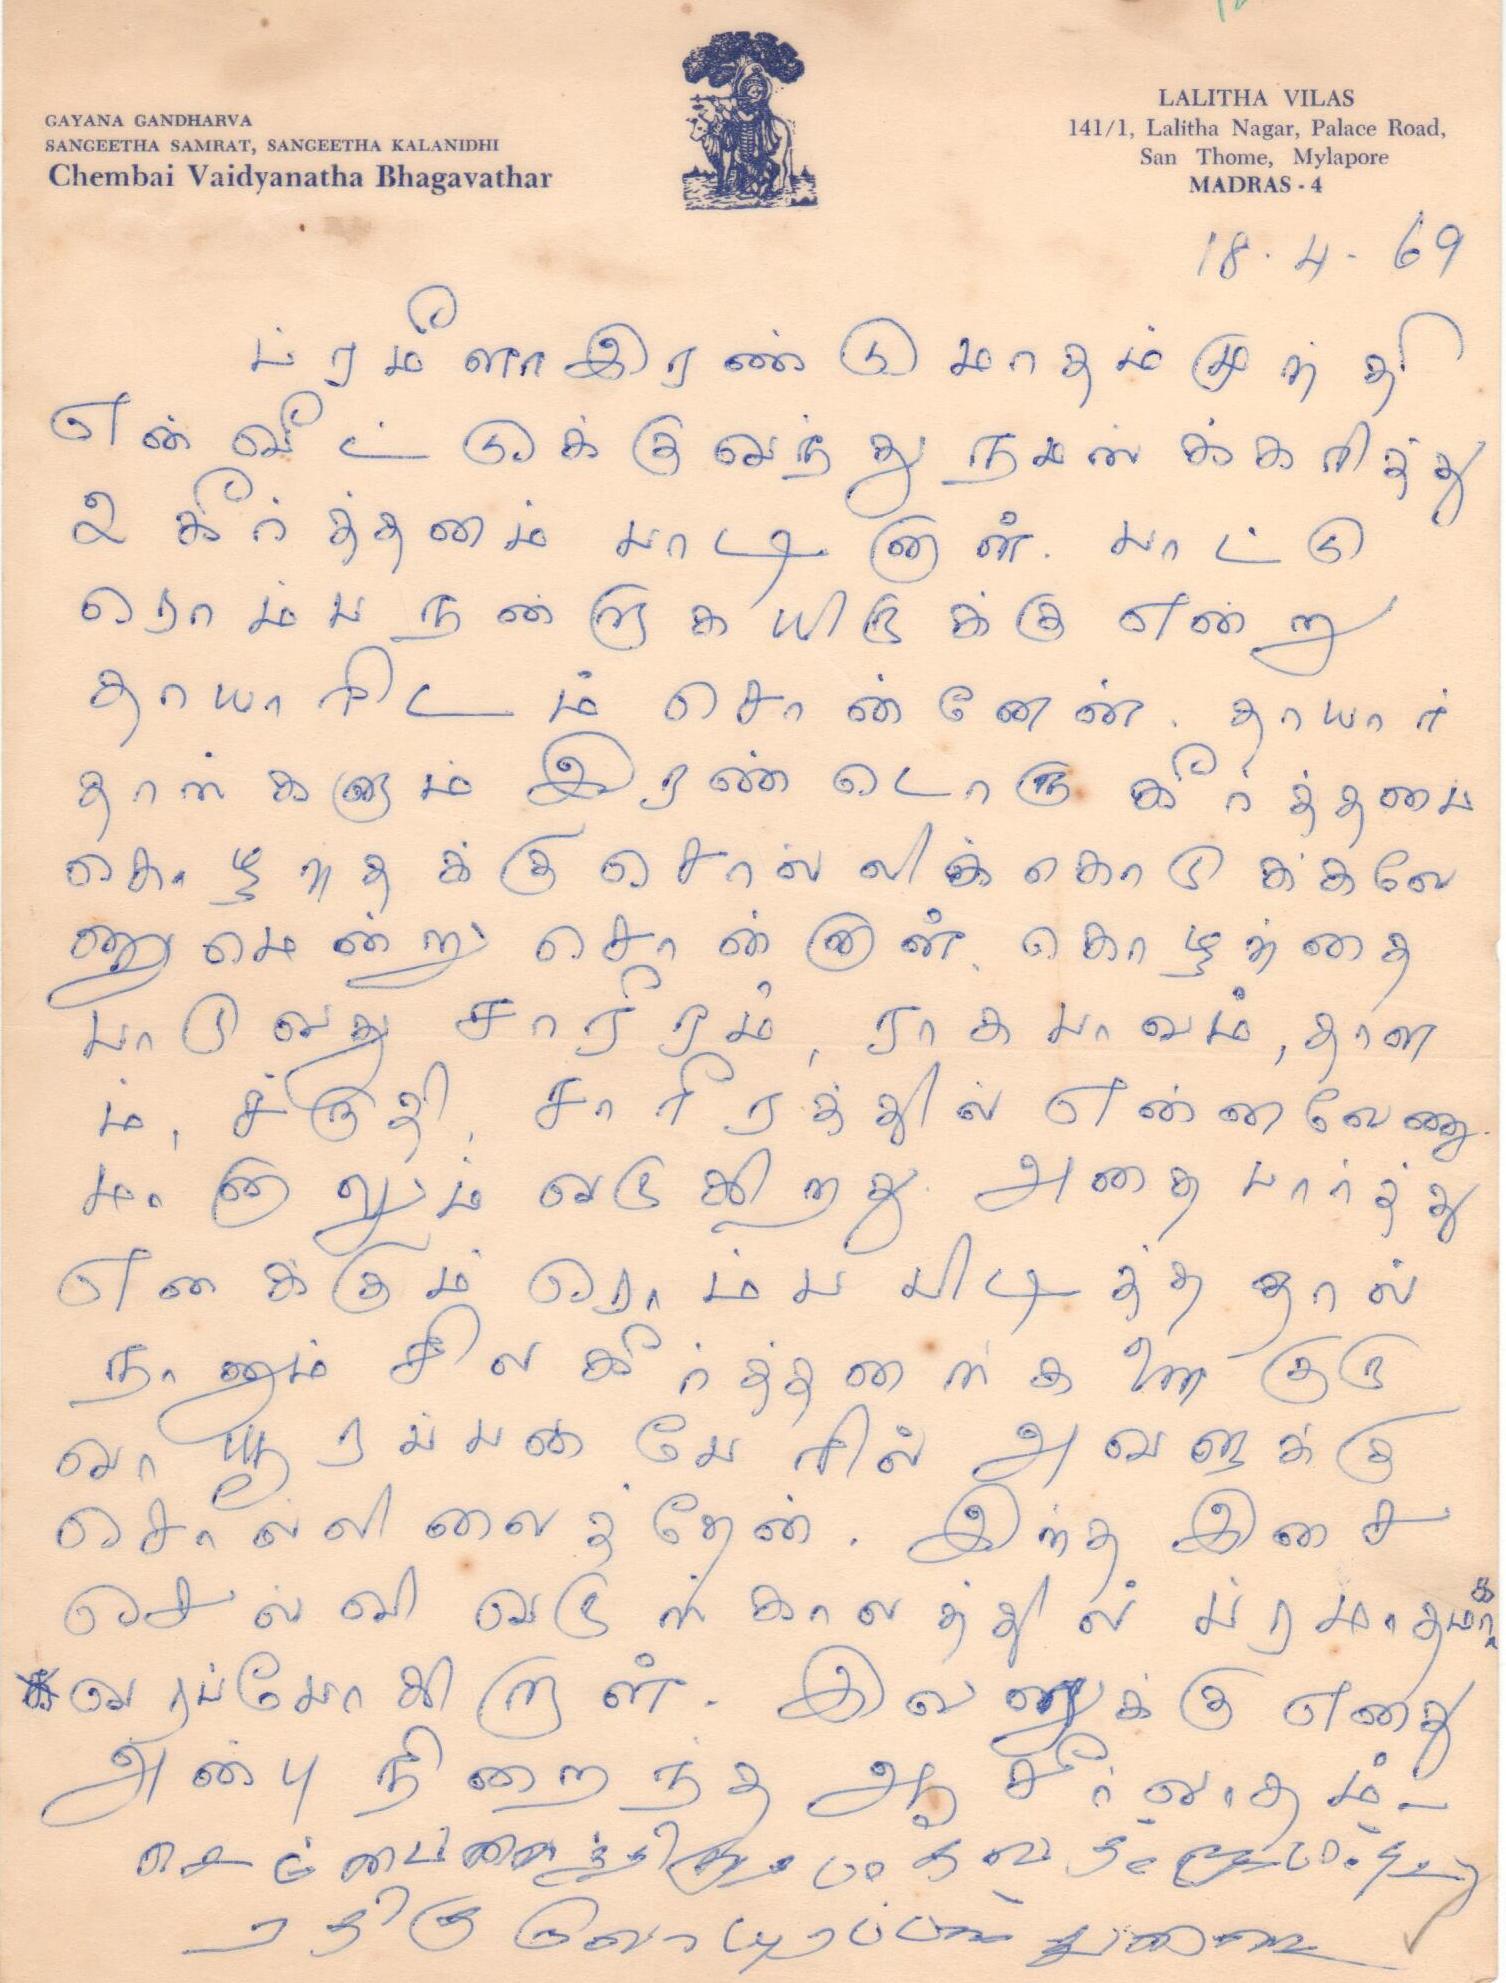 GAYANA GANDHARVA
SANGEETHA SAMRAT, SANGEETHA KALANIDHI
Chembai Vaidyanatha Bhagavathar
LALITHA VILAS
141/1, Lalitha Nagar, Palace Road,
San Thome, Mylapore
MADRAS - 4
18. 4. 69
ப்ரமீளா இரண்டு மாதம் முந்தி
என் வீட்டுக்கு வந்து நமஸ்க்கரித்து
2 கீர்த்தனம் பாடினாள். பாட்டு
ரொம்ப நன்றாகயிருக்கு என்று
தாயாரிடம் சொன்னேன். தாயார்
தாங்களும் இரண்டொரு கீர்த்தனை
கொழந்தக்கு சொல்லிக்கொடுக்கவே
ணுமென்று சொன்னாள். கொழந்தை
பாடுவது சாரீரம், ராகபாவம், தாள
ம், ச்ருதி, சாரீரத்தில் என்னவேணு
மானாலும் வருகிறது. அதை பார்த்து
எனக்கும் ரொம்ப பிடித்ததால்
நானும் சில கீர்த்தனங்களை குரு
வாயூரப்பன் மேரில் அவளுக்கு
சொல்லி வைத்தேன். இந்த இசை
செல்வி வருங்காலத்தில் ப்ரமாதமாக
வரப்போகிறாள். இவளுக்கு எனது
அன்பு நிறைந்த ஆசீர்வாதம்-
குருவாயூரப்பன் துணை